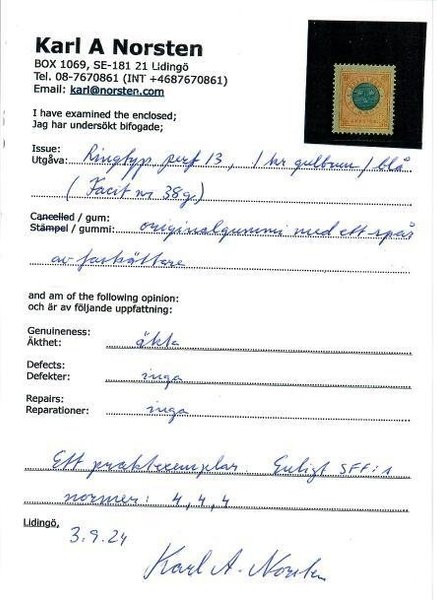 Karl A Norsten
BOX 1069, SE-181 21 Lidingö
Tel. 08-7670861 (INT +4687670861)
Email: karl@norsten.com
I have examined the enclosed;
Jag har undersökt bifogade;
Issue:
Utgåva: Ringtyp perf 13, 1 kr gulbrun/blå
(Facit nr 38g)
Cancelled / gum:
Stämpel / gummi: originalgummi med ett spår
av fastsättare
and am of the following opinion:
och är av följande uppfattning:
Genuineness:
Äkthet: äkta
Defects:
Defekter: inga
Repairs:
Reparationer: inga
Ett praktexemplar. Enligt SFF:s
normer: 4, 4, 4
Lidingö,
3.9.24
Karl A. Norsten